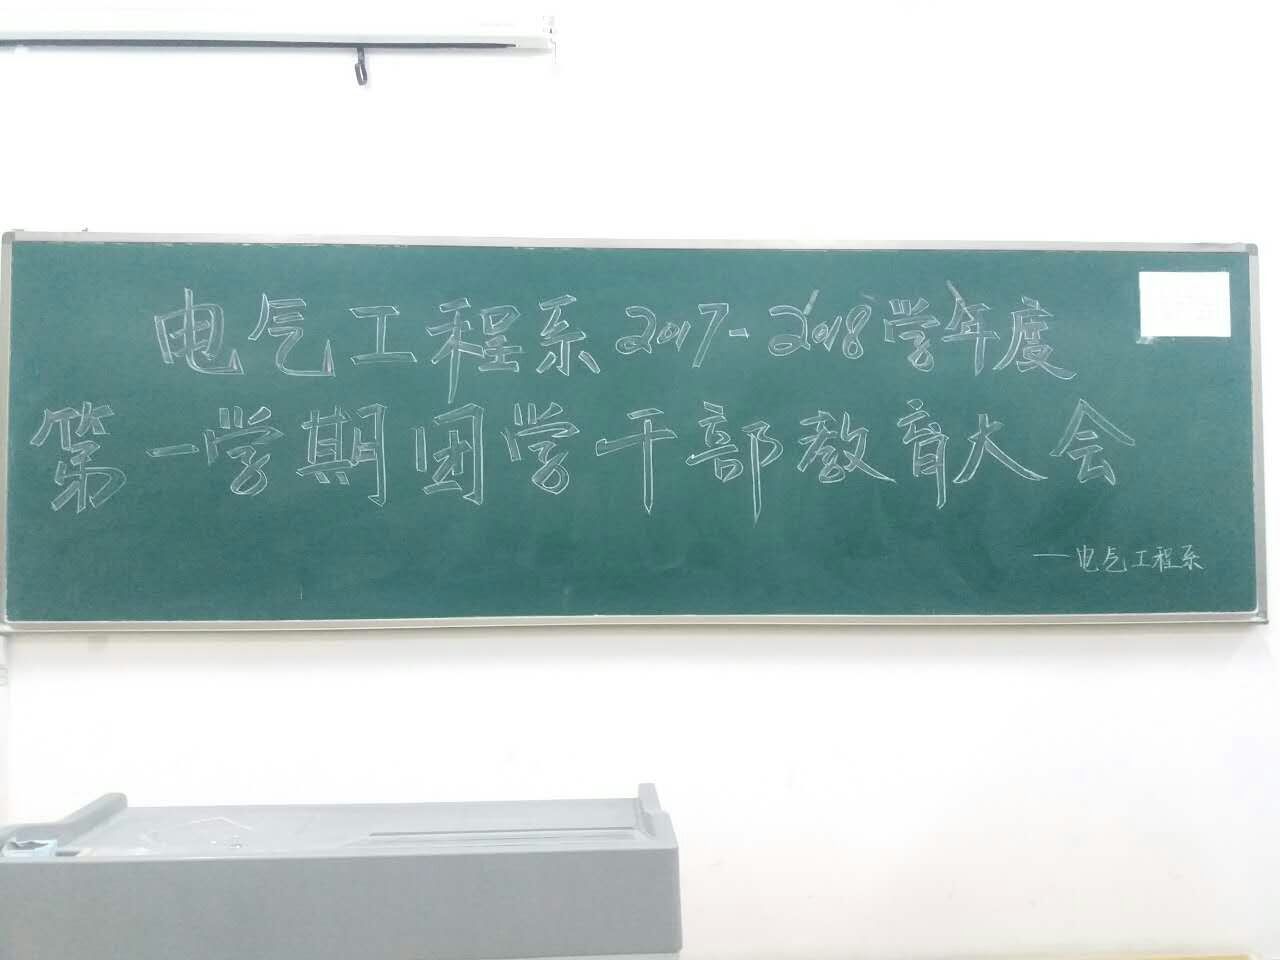 电气工程系2017-2018学年度
第一学期团学干部教育大会
—电气工程系